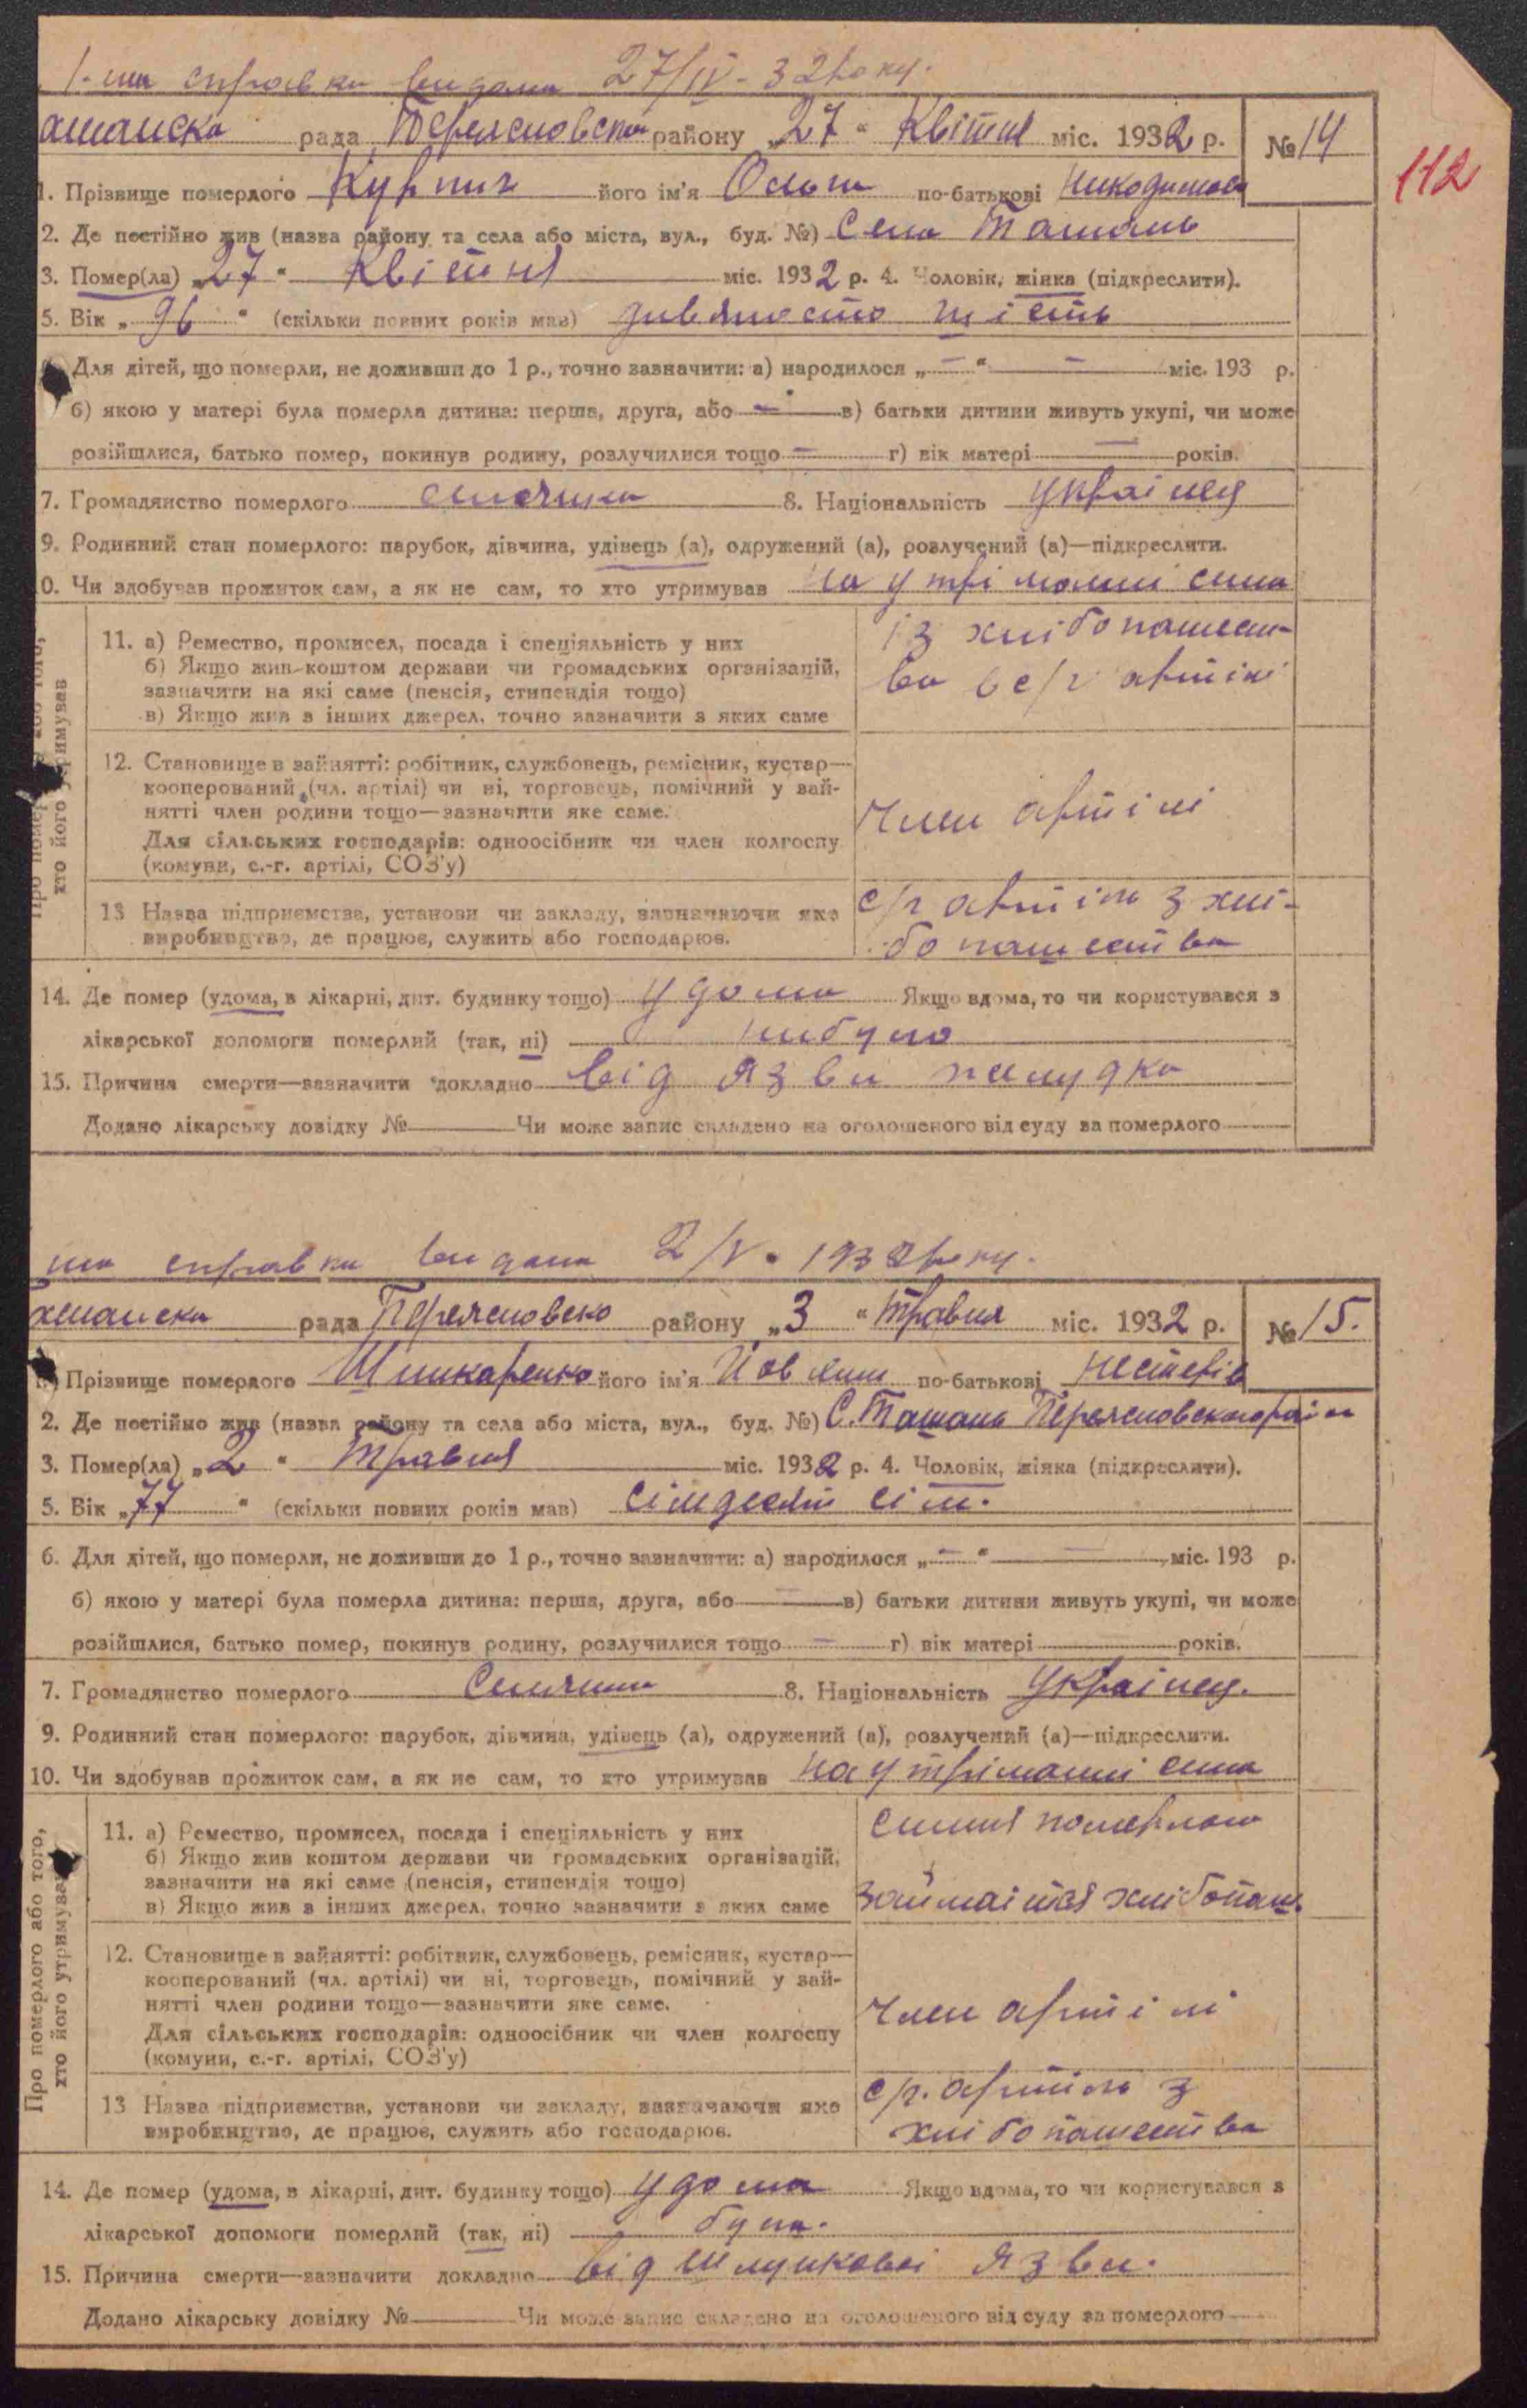 1-ша справка видана 27/IV-32 року.
ашанска рада Переяслов району „27“ Квітня міс. 1932 р. № 14
112
1. Прізвище померлого його ім'я по-батькові
2. Де постійно жив (назва району та села або міста, вул., буд. №) Село Ташань
3. Помер(ла) „27“ Квітня міс. 1932 р. 4. Чоловік, жінка (підкреслити).
5. Вік „96“ (скільки повних років мав) шість
6. Для дітей, що померли, не доживши до 1 р., точно зазначити: а) народилося „—“ — міс. 193 р.
б) якою у матері була померла дитина: перша, друга, або — в) батьки дитини живуть укупі, чи може
розійшлися, батько помер, покинув родину, розлучилися тощо — г) вік матері — років.
7. Громадянство померлого селянка 8. Національність українец
9. Родинний стан померлого: парубок, дівчина, удівець (а), одружений (а), розлучений (а)—підкреслити.
10. Чи здобував прожиток сам, а як не сам, то хто утримував на утріманні сина
Про померлого або того,
хто його утримував
11. а) Ремество, промисел, посада і спеціяльність у них
б) Якщо жив коштом держави чи громадських організацій,
зазначити на які саме (пенсія, стипендія тощо)
в) Якщо жив з інших джерел, точно зазначити з яких саме
із хлібопашест-
ва с/г артілі
12. Становище в зайнятті: робітник, службовець, ремісник, кустар—
кооперований (чл. артілі) чи ні, торговець, помічний у зай-
нятті член родини тощо—зазначити яке саме.
Для сільських господарів: одноосібник чи член колгоспу
(комуни, с.-г. артілі, СОЗ'у)
Член артілі
13 Назва підприємства, установи чи закладу, зазначаючи яке
виробництво, де працює, служить або господарює.
с/г артіль з хлі-
бопашества
14. Де помер (удома, в лікарні, дит. будинку тощо) удома Якщо вдома, то чи користувався з
лікарської допомоги померлий (так, ні) небуло
15. Причина смерти—зазначити докладно від язви желудка
Додано лікарську довідку № Чи може запис складено на оголошеного від суду за померлого
ша справка видана 2/V. 1932 року.
рада району „3“ Травня міс. 1932 р. № 15.
1. Прізвище померлого Шинкаренко його ім'я по-батькові Нестерів
2. Де постійно жив (назва району та села або міста, вул., буд. №) С. Ташань
3. Помер(ла) „2“ Травня міс. 1932 р. 4. Чоловік, жінка (підкреслити).
5. Вік „77“ (скільки повних років мав) сімдесят сім.
6. Для дітей, що померли, не доживши до 1 р., точно зазначити: а) народилося „—“ — міс. 193 р.
б) якою у матері була померла дитина: перша, друга, або — в) батьки дитини живуть укупі, чи може
розійшлися, батько помер, покинув родину, розлучилися тощо — г) вік матері років.
7. Громадянство померлого Селянин 8. Національність українец.
9. Родинний стан померлого: парубок, дівчина, удівець (а), одружений (а), розлучений (а)—підкреслити.
10. Чи здобував прожиток сам, а як не сам, то хто утримував на утріманні сина
Про померлого або того,
хто його утримував
11. а) Ремество, промисел, посада і спеціяльність у них
б) Якщо жив коштом держави чи громадських організацій,
зазначити на які саме (пенсія, стипендія тощо)
в) Якщо жив з інших джерел, точно зазначити з яких саме
померлого
займаіться хлібопаш.
12. Становище в зайнятті: робітник, службовець, ремісник, кустар—
кооперований (чл. артілі) чи ні, торговець, помічний у зай-
нятті член родини тощо—зазначити яке саме.
Для сільських господарів: одноосібник чи член колгоспу
(комуни, с.-г. артілі, СОЗ'у)
Член артілі
13 Назва підприємства, установи чи закладу, зазначаючи яке
виробництво, де працює, служить або господарює.
с/г. артіль з
хлібопашества
14. Де помер (удома, в лікарні, дит. будинку тощо) удома Якщо вдома, то чи користувався з
лікарської допомоги померлий (так, ні) була.
15. Причина смерти—зазначити докладно від шлункової язви.
Додано лікарську довідку № Чи може запис складено на оголошеного від суду за померлого